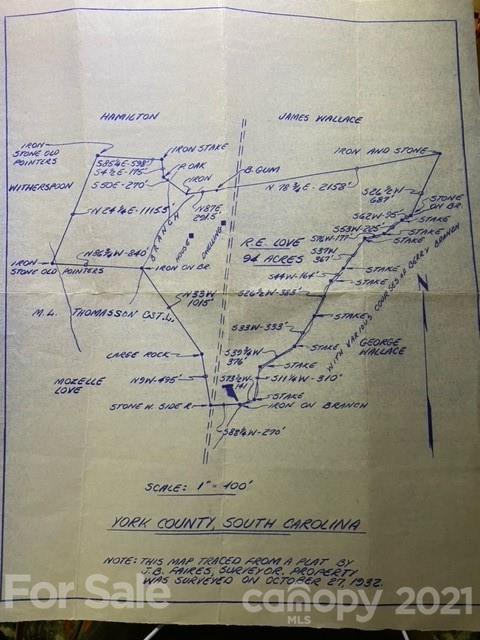 HAMILTON
JAMES WALLACE
IRON
STONE OLD
POINTERS
IRON STAKE
IRON AND STONE
S85¼E-598'
S4½E-175'
P. OAK
S50E-270'
IRON
B. GUM
N 78¾E - 2158'
WITHERSPOON
S26½W
687'
STONE
ON BR.
N87E
291.5
S62W-95'
STAKE
N24¼E-1115.5'
BRANCH
S53W-225'
STAKE
S76W-177'
STAKE
R.E. LOVE
94 ACRES
S37W
367'
HOUSE
DWELLING
N86¾W-840'
IRON
STONE OLD POINTERS
IRON ON BR.
STAKE
S44W-164'
STAKE
S26½W-383'
N33W
1015'
M.L. THOMASSON EST. L.
STAKE
WITH VARIOUS COURSES OF BERRY BRANCH
N
S33W-333'
GEORGE
WALLACE
LARGE ROCK
S39¾W
376'
STAKE
STAKE
MOZELLE
LOVE
N9W-495'
S73½W
141
S11¼W-310'
STAKE
STONE W. SIDE R
IRON ON BRANCH
S88¼W-270'
SCALE: 1" = 400'
YORK COUNTY, SOUTH CAROLINA
NOTE: THIS MAP TRACED FROM A PLAT BY
J.B. FAIRES, SURVEYOR. PROPERTY
WAS SURVEYED ON OCTOBER 27, 1932.
For Sale
canopy 2021
MLS